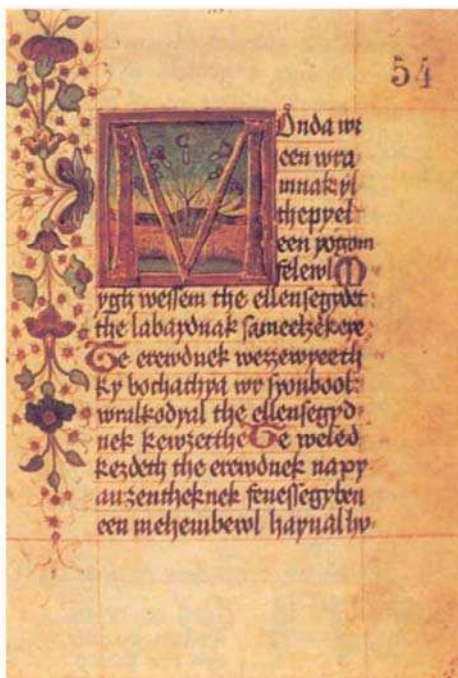 54
Monda wr
een wra
mnak yl
thepyel
een yogom
felewl M
ygh wessem the ellensegydet
the labaydnak sameelzekere
Te erewdnek wezzewyeeth
ky bochathya wr syonbool:
wralkodyal the ellensegyd
nek kewzetthe Te weled
kezdeth the erewdnek napy
an zentheknek fenessegyben
een mehembewl haynal hy